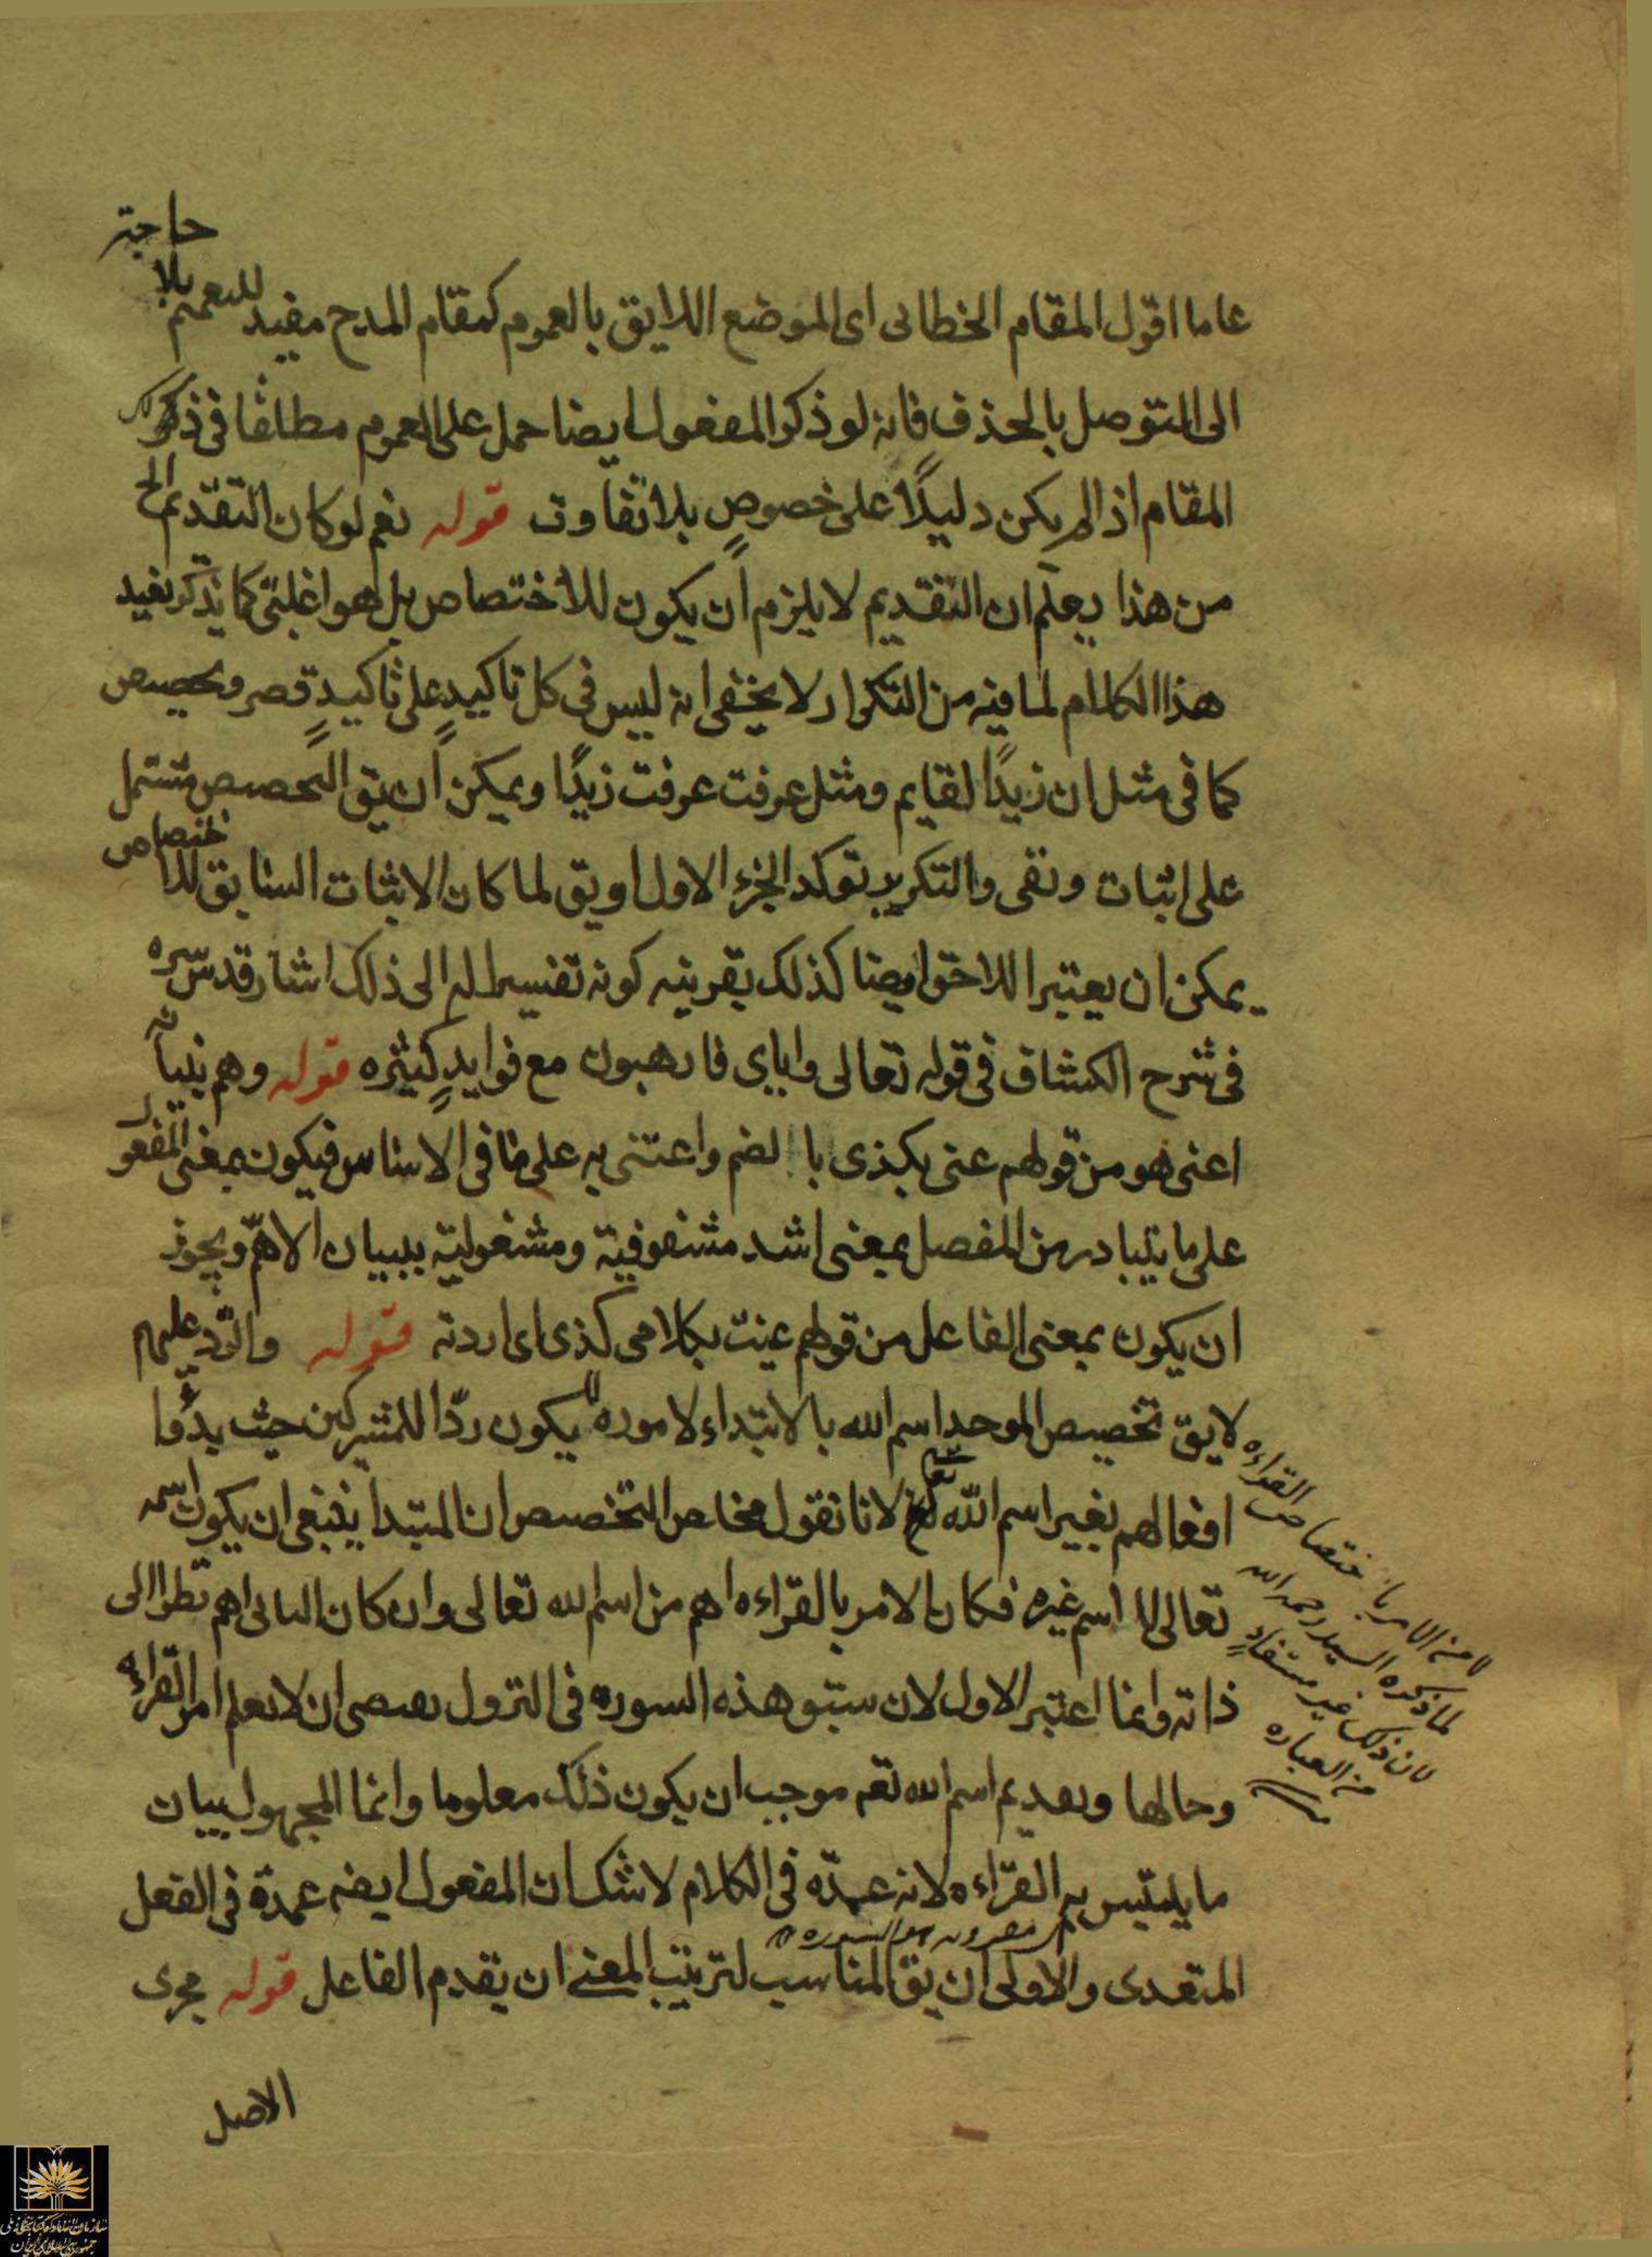 عاما اقول المقام الخطابى اى الموضع اللايق بالعموم كمقام المدح مفيد للتعميم بلا حاجة
الى التوصل بالحذف فانه لو ذكر المفعول ايضا حمل على العموم مطلقا فى ذكر
المقام اذا لم يكن دليلًا على خصوصٍ بلا تفاوت قوله نعم لو كان التقديم الخ
من هذا يعلم ان التقديم لا يلزم ان يكون للاختصاص بل هو اغلبىّ كما يذكر بعيد
هذا الكلام لما فيه من التكرار لا يخفى انه ليس فى كل تاكيدٍ على تاكيدٍ قصر وتخصيص
كما فى مثل ان زيدًا لقايم ومثل عرفت عرفت زيدًا ويمكن ان يق التخصيص مشتمل
على اثبات ونفى والتكرير توكد الجزء الاول او يق لما كان الاثبات السابق للاختصاص
يمكن ان يعتبر اللاحق ايضا كذلك بقرينه كونه تفسيرا له الى ذلك اشار قدس سره
فى شرح الكشاف فى قوله تعالى واياى فارهبون مع فوايدٍ كثيره قوله وهم ببيانه
اعنى هو من قولهم عنى بكذى بالضم واعتنى به على ما فى الاساس فيكون بمعنى المفعول
على ما يتبادر من المفصل بمعنى اشد مشغوفية ومشغولية ببيان الاهمّ ويجوز
ان يكون بمعنى الفاعل من قولهم عنيت بكلامى كذى اى اردته قوله والرّد عليهم
لا يق تخصيص الموحد اسم الله بالابتداء لاموره يكون ردّا للمشركين حيث بدؤا
افعالهم بغير اسم الله تعا لانا نقول مخاص التخصيص ان المبتدا ينبغى ان يكون اسمه
تعالى لا اسم غيره فكان الامر بالقراءه اهم من اسم الله تعالى وان كان البانى اهم نظرا الى
ذاته وانما اعتبر الاول لان سبق هذه السوره فى النزول يقتضى ان لا يعلم امر القراءه
وحالها وتقديم اسم الله تعه موجب ان يكون ذلك معلوما وانما المجهول بيان
ما يلتبس به القراءه لانه عمدّه فى الكلام لا شك ان المفعول ايضه عمدة فى الفعل
المتعدى والاولى ان يق المناسب لترتيب المعنى ان يقدم الفاعل قوله مجرى
الاصل
من الامر باختصاص القراءه
لما ذكره السيد رحمه الله
لان ذلك غير مستفادٍ
من العباره